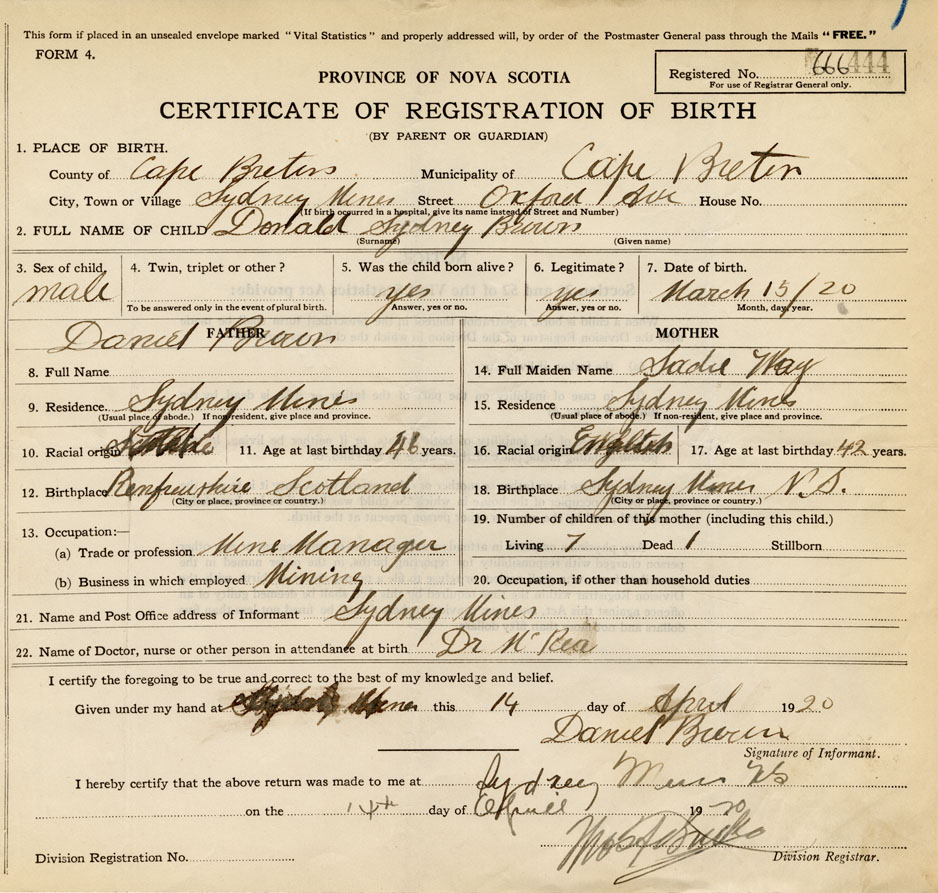 This form if placed in an unsealed envelope marked "Vital Statistics" and properly addressed will, by order of the Postmaster General pass through the Mails "FREE."
FORM 4.
Registered No.
For use of Registrar General only.
PROVINCE OF NOVA SCOTIA
CERTIFICATE OF REGISTRATION OF BIRTH
(BY PARENT OR GUARDIAN)
1. PLACE OF BIRTH.
County of Cape Breton Municipality of Cape Breton
City, Town or Village Sydney Mines Street Oxford Ave House No.
(If birth occurred in a hospital, give its name instead of Street and Number)
2. FULL NAME OF CHILD Donald Sydney Brown
(Surname) (Given name)
3. Sex of child, 4. Twin, triplet or other? 5. Was the child born alive? 6. Legitimate? 7. Date of birth.
male yes yes March 15/20
To be answered only in the event of plural birth. Answer, yes or no. Answer, yes or no. Month, day, year.
FATHER MOTHER
Daniel Brown
8. Full Name 14. Full Maiden Name Sadie Way
9. Residence. Sydney Mines 15. Residence Sydney Mines
(Usual place of abode.) If non-resident, give place and province. (Usual place of abode.) If non-resident, give place and province.
10. Racial origin 11. Age at last birthday 46 years. 16. Racial origin English 17. Age at last birthday 42 years.
12. Birthplace Renfrewshire Scotland 18. Birthplace Sydney Mines N.S.
(City or place, province or country.) (City or place, province or country.)
13. Occupation:— 19. Number of children of this mother (including this child.)
(a) Trade or profession Mine Manager Living 7 Dead 1 Stillborn
(b) Business in which employed Mining 20. Occupation, if other than household duties
21. Name and Post Office address of Informant Sydney Mines
22. Name of Doctor, nurse or other person in attendance at birth Dr McRea
I certify the foregoing to be true and correct to the best of my knowledge and belief.
Given under my hand at Mines this 14 day of April 1920
Daniel Brown
Signature of Informant.
I hereby certify that the above return was made to me at Sydney Mines
on the 14th day of Aprill 1920
Division Registration No. Division Registrar.